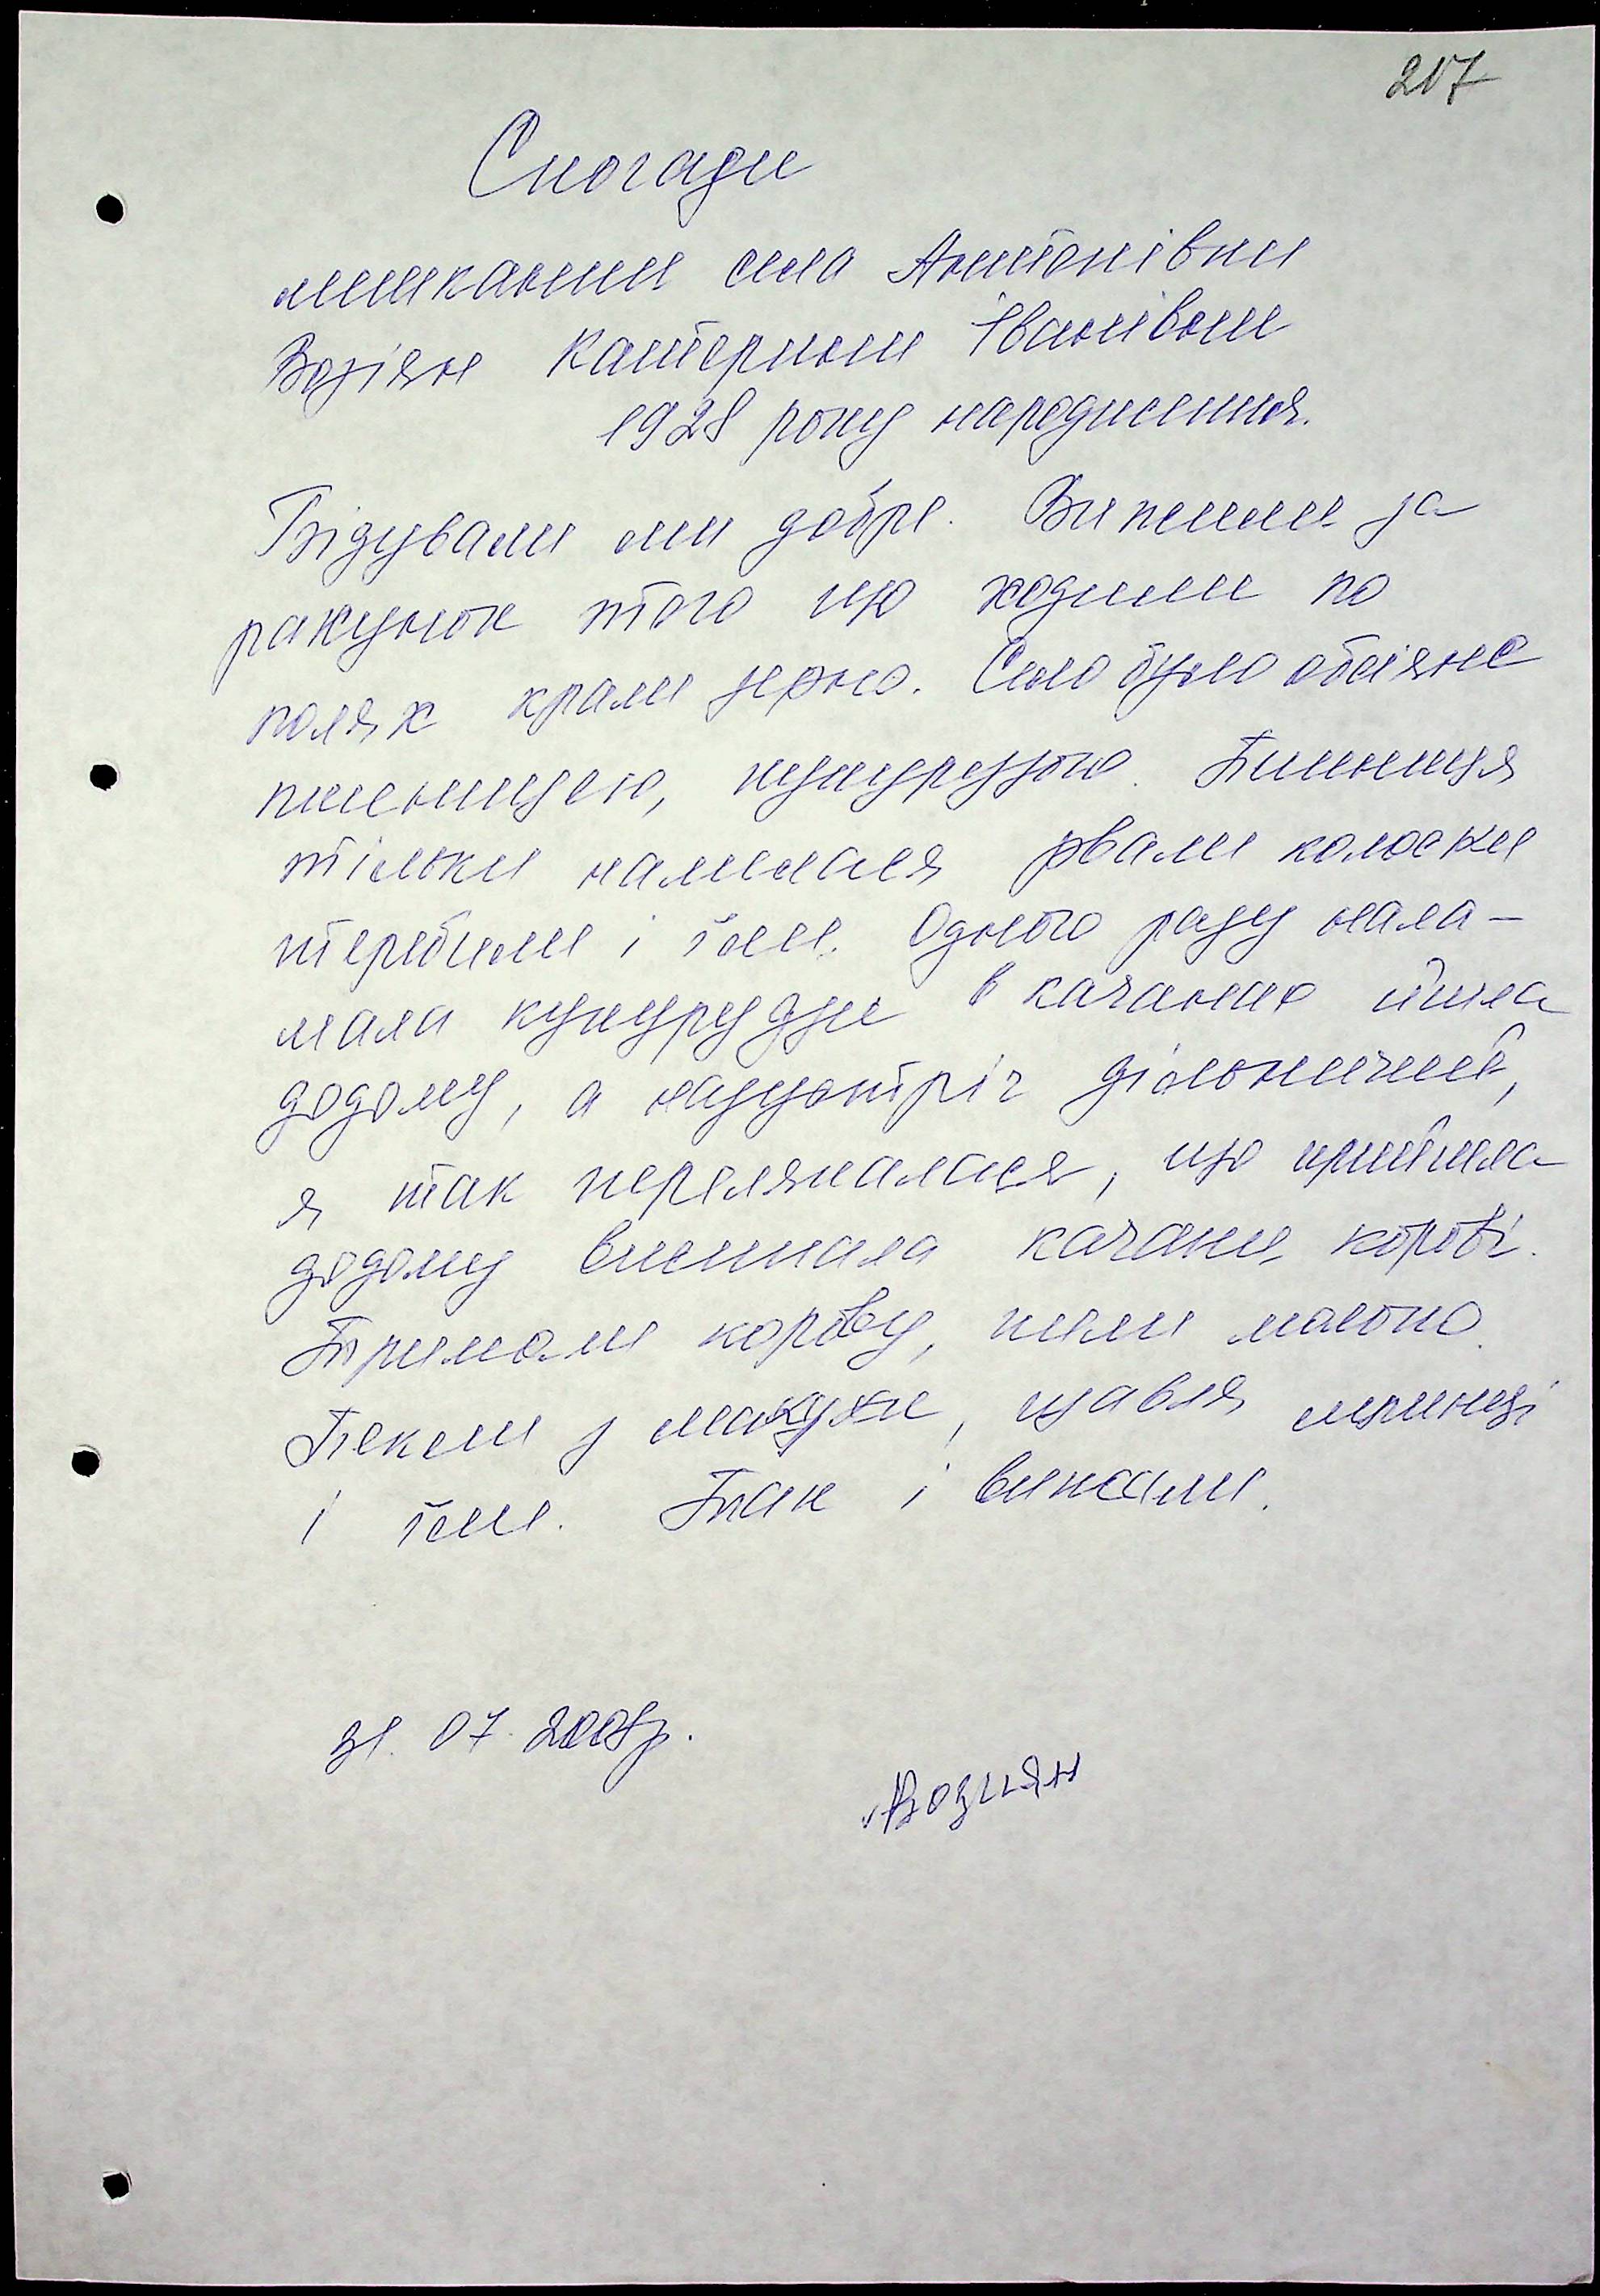 217
Спогади
мешканки села Антонівки
Возіян Катерини Іванівни
1928 року народження.
Бідували ми добре. Вижили за
рахунок того що ходили по
полях крали зерно. Село було обсіяне
пшеницею, кукурузою. Пшениця
тільки налилася рвали колоски
теребили і їли. Одного разу нала-
мала кукурудзи в качанах йшла
додому, а назустріч дільничний,
я так перелякалася, що прийшла
додому висипала качани корові.
Тримали корову, пили молоко.
Пекли з макухи, щавля млинці
і їли. Так і вижили.
31. 07. 2008р.
Возиян